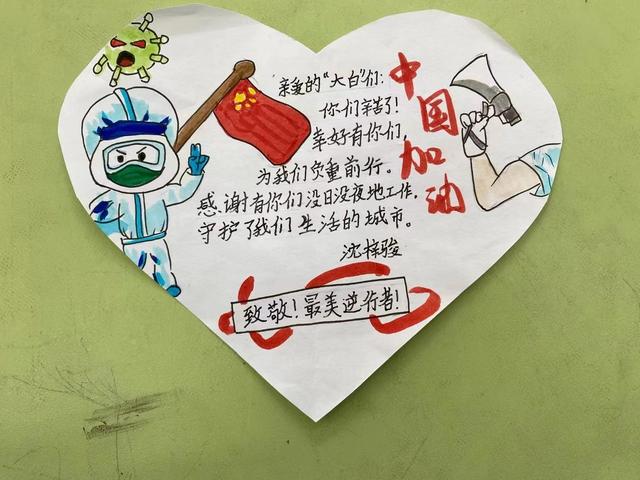 亲爱的“大白”们：
你们辛苦了！
幸好有你们，
为我们负重前行。
感谢有你们没日没夜地工作，
守护了我们生活的城市。
沈梓骏
中国加油
致敬！最美逆行者！